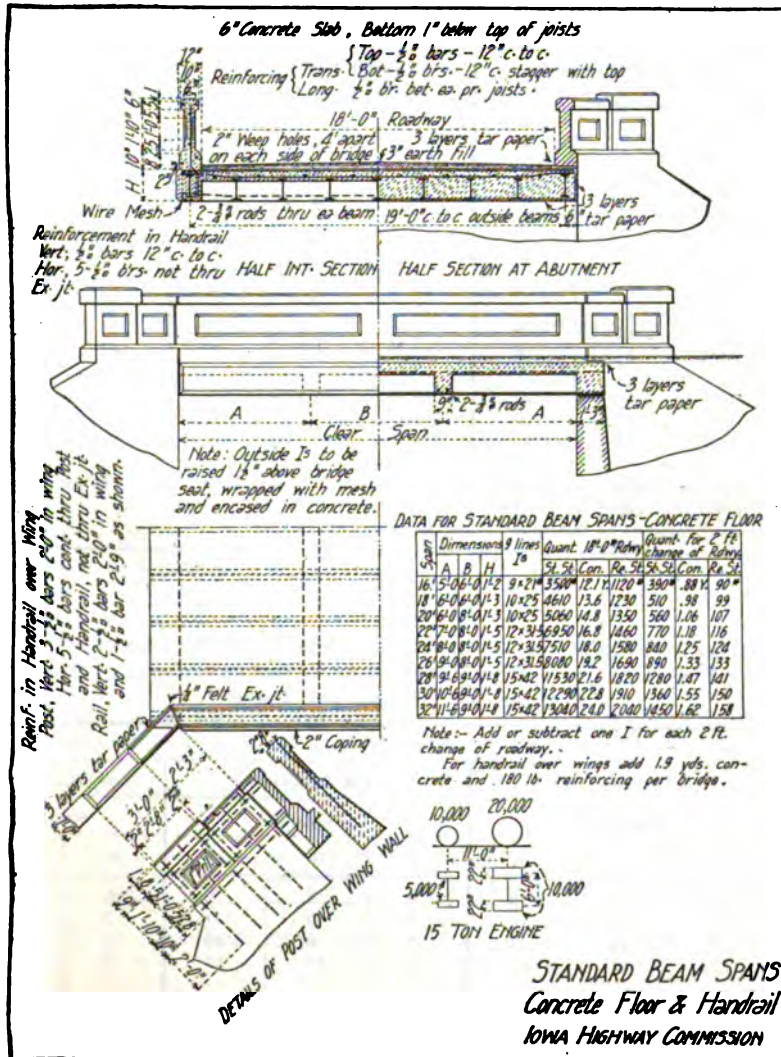 6" Concrete Slab, Bottom 1" below top of joists
Reinforcing
Trans.
Top - ½" bars - 12" c. to c.
Bot - ½" brs. - 12" c. stagger with top
Long. ½" br. bet. ea. pr. joists.
12"
10"
6"
18'-0" Roadway
2" Weep holes, 4' apart
on each side of bridge
3 layers tar paper
3" earth fill
H 10" 1'10" 6"
Wire Mesh
2-¾" rods thru ea beam
19'-0" c to c outside beams
6"
3 layers
tar paper
Reinforcement in Handrail
Vert, ½" bars 12" c. to c.
Hor, 5-½" brs. not thru
Ex. jt.
HALF INT. SECTION
HALF SECTION AT ABUTMENT
3 layers
tar paper
9"
2-¾" rods
A
B
A
Clear Span
Note: Outside Is to be
raised 1½" above bridge
seat, wrapped with mesh
and encased in concrete.
Reinf. in Handrail over Wing
Post, Vert. 3-½" bars 2'-0" in wing
Hor. 5-½" bars cont. thru Post
and Handrail, not thru Ex. jt.
Rail, Vert. 2-½" bars 2'0" in wing
and 1-½" bar 2'-9" as shown.
DATA FOR STANDARD BEAM SPANS-CONCRETE FLOOR
Span Dimensions 9 lines Is Quant. 18'-0" Rdwy Quant. for 2 ft. change of Rdwy.
A B H St. St. Con. Re. St. St. St. Con. Re. St.
16' 5'-0 6'-0 1'-2 9×21# 3500# 12.1 Y. 1120# 390# .88 Y. 90#
18' 6'-0 6'-0 1'-3 10×25 4610 13.6 1230 510 .98 99
20' 6'-0 8'-0 1'-3 10×25 5060 14.8 1350 560 1.06 107
22' 7'-0 8'-0 1'-5 12×31.5 6950 16.8 1460 770 1.18 116
24' 8'-0 8'-0 1'-5 12×31.5 7510 18.0 1580 840 1.25 124
26' 9'-0 8'-0 1'-5 12×31.5 8080 19.2 1690 890 1.33 133
28' 9'-6 9'-0 1'-8 15×42 11530 21.6 1820 1280 1.47 141
30' 10'-6 9'-0 1'-8 15×42 12290 22.8 1910 1360 1.55 150
32' 11'-6 9'-0 1'-8 15×42 13040 24.0 2040 1450 1.62 158
Note:- Add or subtract one I for each 2 ft.
change of roadway.
For handrail over wings add 1.9 yds. con-
crete and 180 lb. reinforcing per bridge.
½" Felt Ex. jt.
2" Coping
3 layers tar paper
2'-3"
3'-0"
2'-8"
DETAILS OF POST OVER WING WALL
10,000
20,000
11'-0"
5,000
22"
22"
6'-0"
10,000
15 TON ENGINE
STANDARD BEAM SPANS
Concrete Floor & Handrail
IOWA HIGHWAY COMMISSION